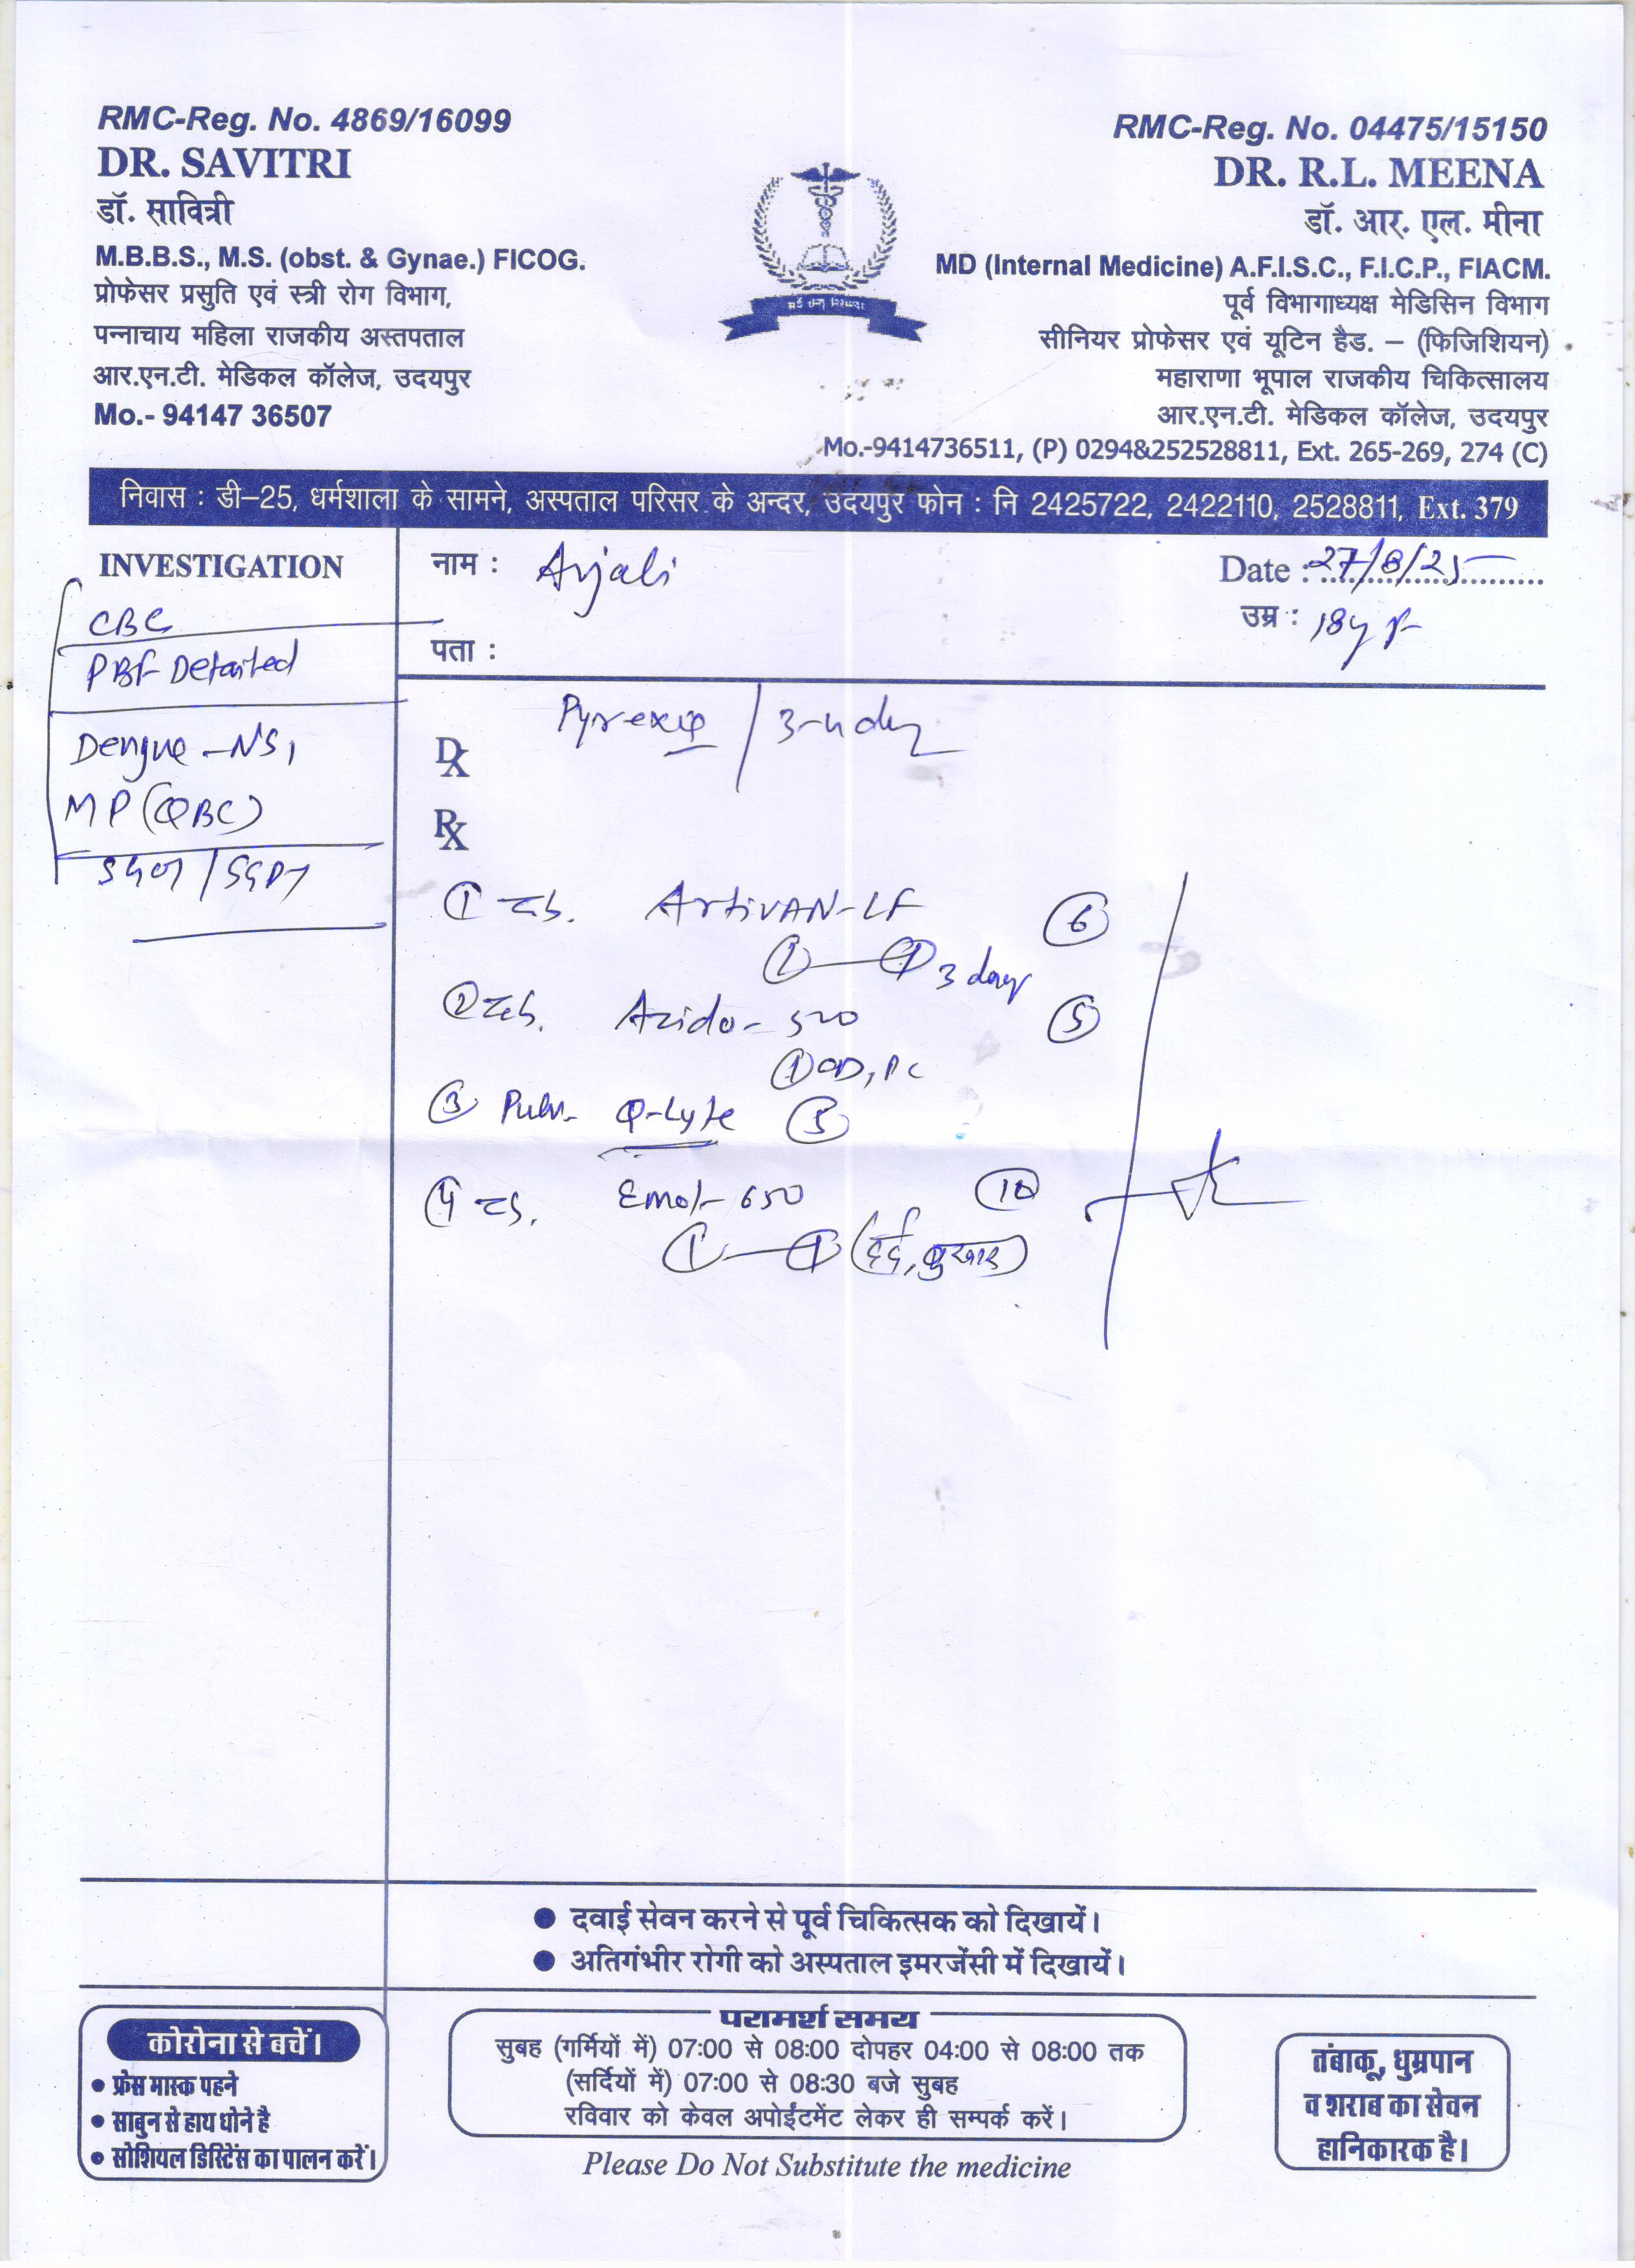 RMC-Reg. No. 4869/16099
DR. SAVITRI
डॉ. सावित्री
M.B.B.S., M.S. (obst. & Gynae.) FICOG.
प्रोफेसर प्रसुति एवं स्त्री रोग विभाग,
पन्नाचाय महिला राजकीय अस्तपताल
आर.एन.टी. मेडिकल कॉलेज, उदयपुर
Mo.- 94147 36507
RMC-Reg. No. 04475/15150
DR. R.L. MEENA
डॉ. आर. एल. मीना
MD (Internal Medicine) A.F.I.S.C., F.I.C.P., FIACM.
पूर्व विभागाध्यक्ष मेडिसिन विभाग
सीनियर प्रोफेसर एवं यूटिन हैड. – (फिजिशियन)
महाराणा भूपाल राजकीय चिकित्सालय
आर.एन.टी. मेडिकल कॉलेज, उदयपुर
Mo.-9414736511, (P) 0294&252528811, Ext. 265-269, 274 (C)
निवास : डी–25, धर्मशाला के सामने, अस्पताल परिसर के अन्दर, उदयपुर फोन : नि 2425722, 2422110, 2528811, Ext. 379
INVESTIGATION
CBC
PBF Detailed
Dengue-NS1
MP (QBC)
SGOT/SGPT
नाम : Anjali
Date : 27/8/25
उम्र : 18y
पता :
Dx Pyrexia / 3-4 day
Rx
① Artivan-LF ⑥
①—① 3 days
② Azido-500 ⑤
① OD, PC
③ Pulv. Q-Lyte ⑤
④ Emol-650 ⑩
①—① (दर्द, बुखार)
● दवाई सेवन करने से पूर्व चिकित्सक को दिखायें।
● अतिगंभीर रोगी को अस्पताल इमरजेंसी में दिखायें।
कोरोना से बचें।
● फ्रेस मास्क पहने
● साबुन से हाथ धोने है
● सोशियल डिस्टिेंस का पालन करें।
परामर्श समय
सुबह (गर्मियों में) 07:00 से 08:00 दोपहर 04:00 से 08:00 तक
(सर्दियों में) 07:00 से 08:30 बजे सुबह
रविवार को केवल अपोईंटमेंट लेकर ही सम्पर्क करें।
Please Do Not Substitute the medicine
तंबाकू, धुम्रपान
व शराब का सेवन
हानिकारक है।